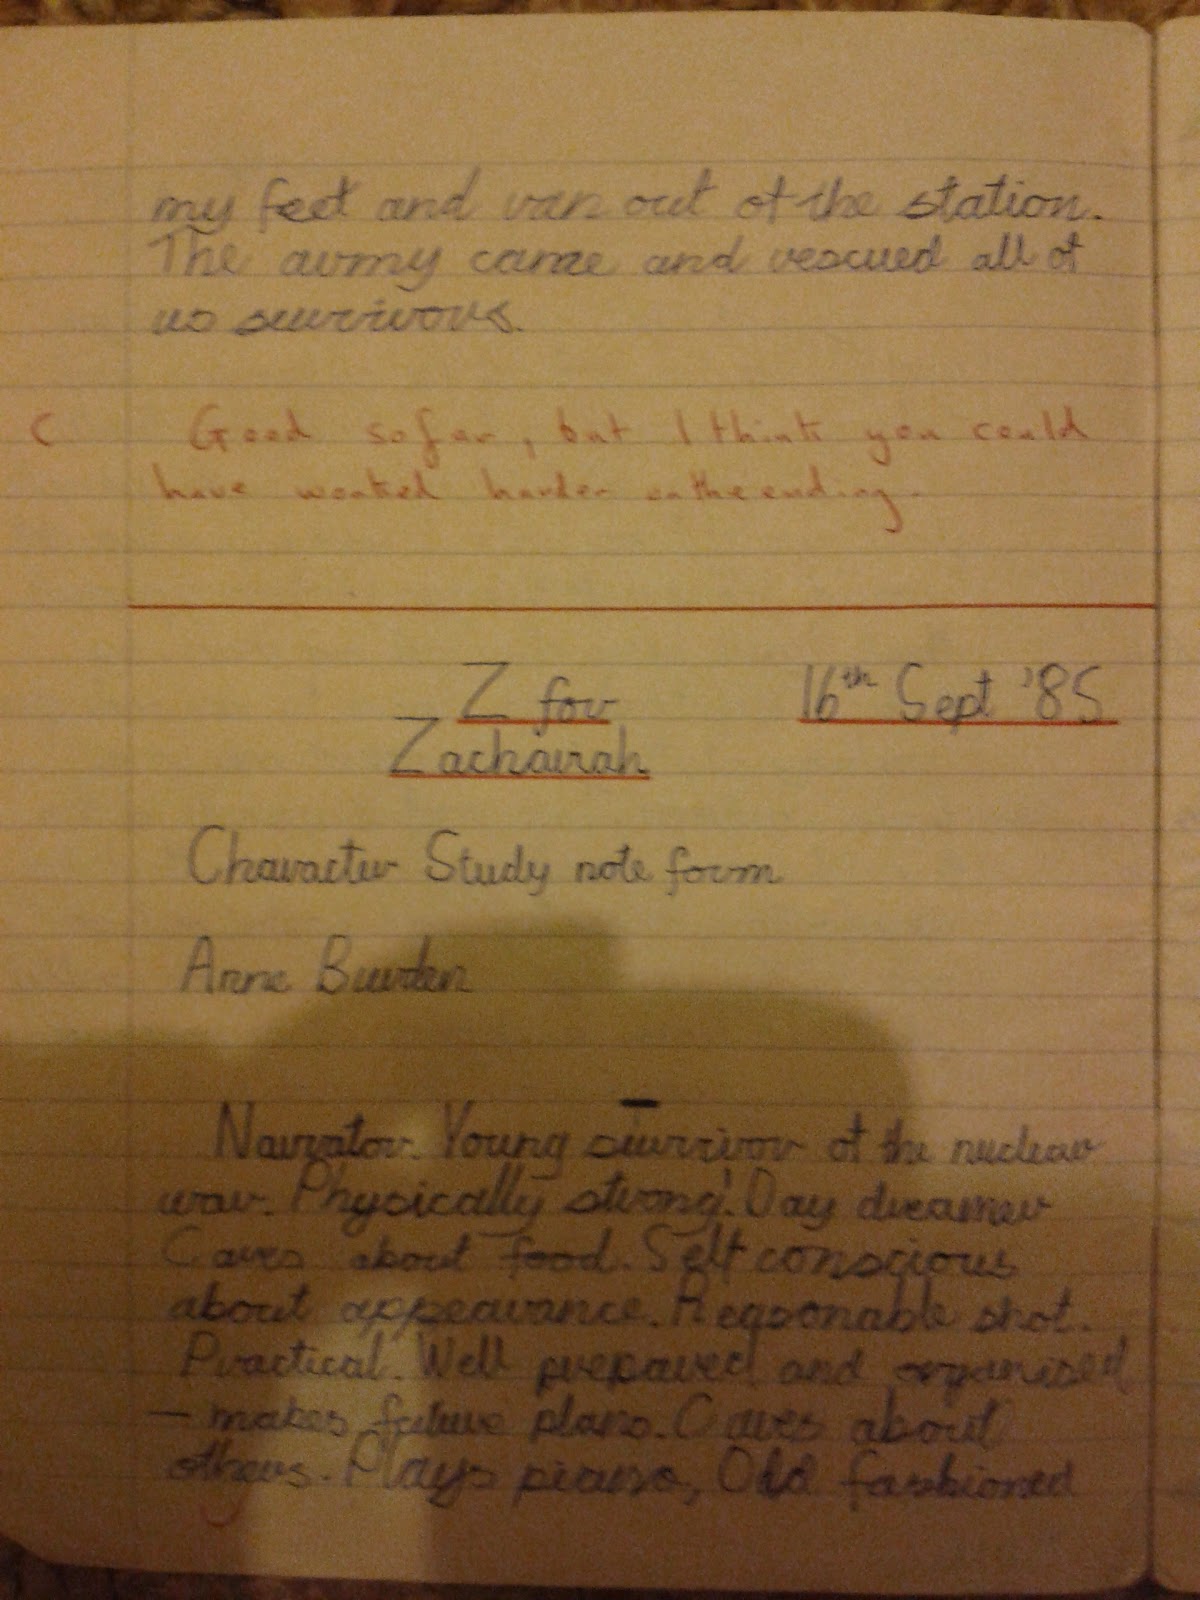 my feet and ran out of the station.
The army came and rescued all of
us survivors.
C Good so far, but I think you could
have worked harder on the ending.
Z for 16th Sept '85
Zachairah
Character Study note form
Anne Burden
Narrator. Young survivor of the nuclear
war. Physically strong! Day dreamer
Cares about food. Self conscious
about appearance. Reasonable shot.
Practical. Well prepared and organised
— makes future plans. Cares about
others. Plays piano, Old fashioned